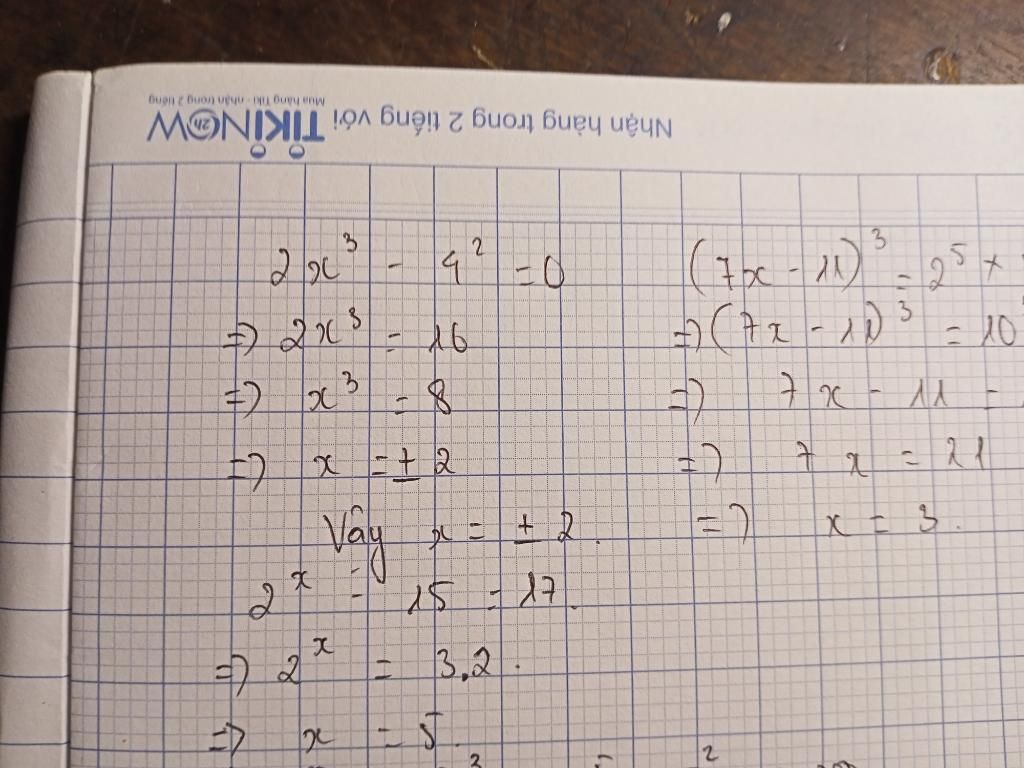 Nhận hàng trong 2 tiếng với TIKINOW 2h
Mua hàng Tiki - nhận trong 2 tiếng
2x³ - 4² = 0
=> 2x³ = 16
=> x³ = 8
=> x = ± 2
Vậy x = ± 2.
2ˣ - 15 = 17.
=> 2ˣ = 3.2.
=> x = 5.
(7x - 11)³ = 2⁵ ×
=> (7x - 11)³ = 10
=> 7x - 11 =
=> 7x = 21
=> x = 3.